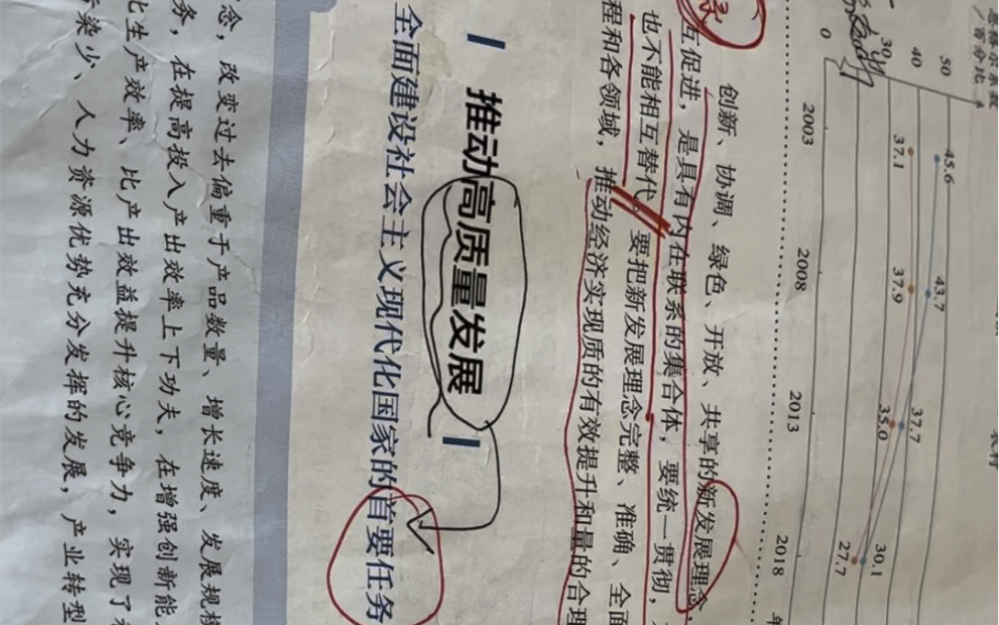 50
40
30
0
45.6
43.7
37.7
30.1
37.1
37.9
35.0
27.7
2003
2008
2013
2018
年
创新、协调、绿色、开放、共享的新发展理念
互促进，是具有内在联系的集合体，要统一贯彻，
也不能相互替代。要把新发展理念完整、准确、全面
程和各领域，推动经济实现质的有效提升和量的合理
推动高质量发展
全面建设社会主义现代化国家的首要任务
念，改变过去偏重于产品数量、增长速度、发展规模
务，在提高投入产出效率上下功夫，在增强创新能
比生产效率、比产出效益提升核心竞争力，实现了
染少、人力资源优势充分发挥的发展，产业转型